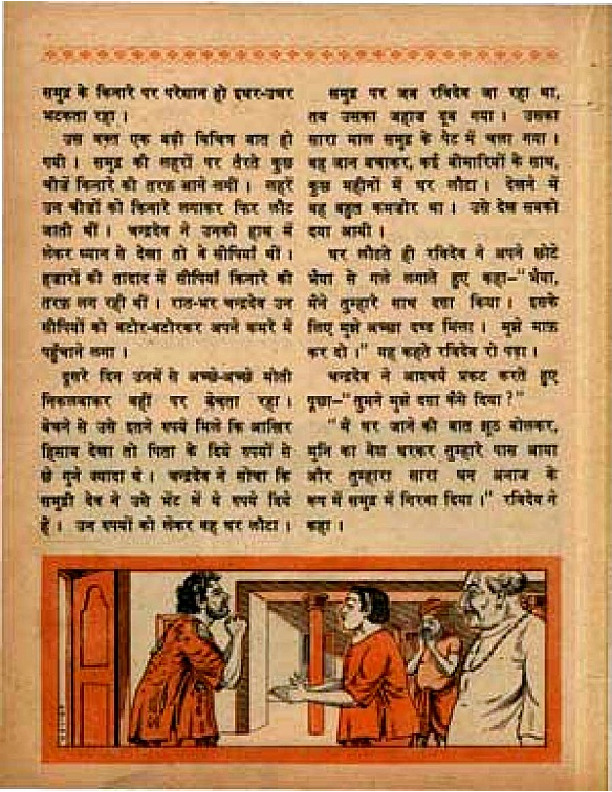 समुद्र के किनारे पर परेशान हो इधर-उधर
भटकता रहा ।
उस वक्त एक बड़ी विचित्र बात हो
गयी । समुद्र की लहरों पर तैरते कुछ
चीजें किनारे की तरफ़ आने लगीं । लहरें
उन चीजों को किनारे लगाकर फिर लौट
जाती थीं । चन्द्रदेव ने उनको हाथ में
लेकर ध्यान से देखा तो वे सीपियाँ थीं ।
हजारों की तादाद में सीपियाँ किनारे की
तरफ़ लग रही थीं । रात-भर चन्द्रदेव उन
सीपियों को बटोर-बटोरकर अपने कमरे में
पहुँचाने लगा ।
दूसरे दिन उनमें से अच्छे-अच्छे मोती
निकलवाकर वहीं पर बेचता रहा ।
बेचने से उसे इतने रुपये मिले कि आखिर
हिसाब देखा तो पिता के दिये रुपयों से
छे गुने ज्यादा थे । चन्द्रदेव ने सोचा कि
समुद्री देव ने उसे भेंट में ये रुपये दिये
हैं । उन रुपयों को लेकर वह घर लौटा ।
समुद्र पर जब रविदेव जा रहा था,
तब उसका जहाज डूब गया । उसका
सारा माल समुद्र के पेट में चला गया ।
वह जान बचाकर, कई बीमारियों के साथ,
कुछ महीनों में घर लौटा । देखने में
वह बहुत कमजोर था । उसे देख सबको
दया आयी ।
घर लौटते ही रविदेव ने अपने छोटे
भैया से गले लगाते हुए कहा-"भैया,
मैंने तुम्हारे साथ दगा किया । इसके
लिए मुझे अच्छा दण्ड मिला । मुझे माफ़
कर दो ।" यह कहते रविदेव रो पड़ा ।
चन्द्रदेव ने आश्चर्य प्रकट करते हुए
पूछा-"तुमने मुझे दगा कैसे दिया ?"
"मैं घर जाने की बात झूठ बोलकर,
मुनि का वेश धरकर तुम्हारे पास आया
और तुम्हारा सारा धन अनाज के
रूप में समुद्र में गिरवा दिया ।" रविदेव ने
कहा ।